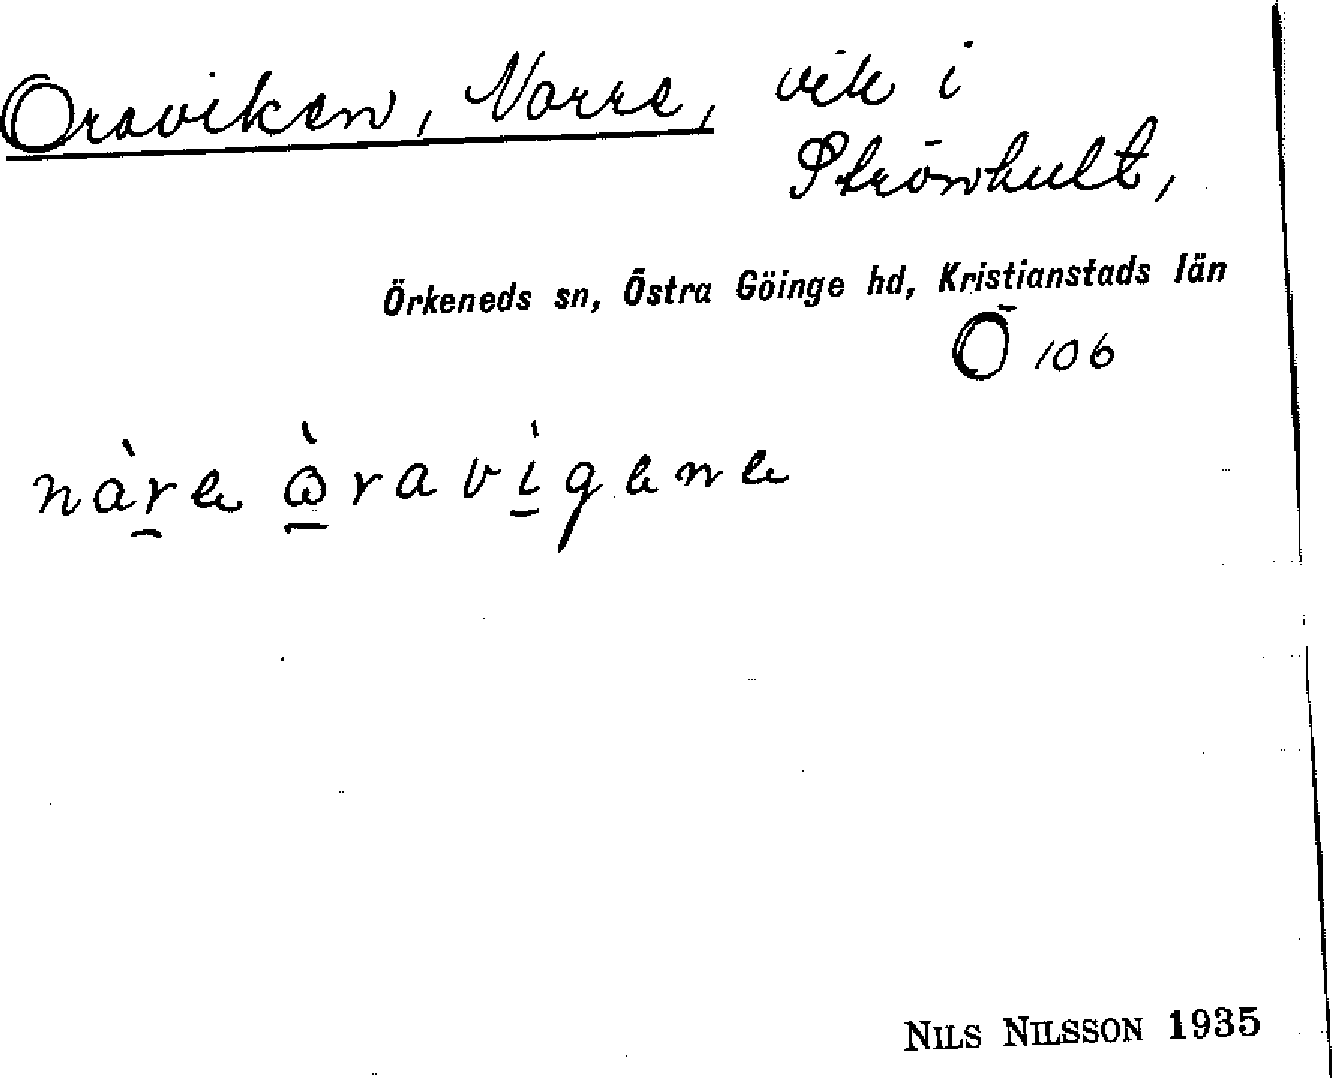 Oraviken, Norre, vik i
Strönhult,
Örkeneds sn, Östra Göinge hd, Kristianstads län
Ö 106
nàrɐ ὼravigɐnɐ
NILS NILSSON 1935